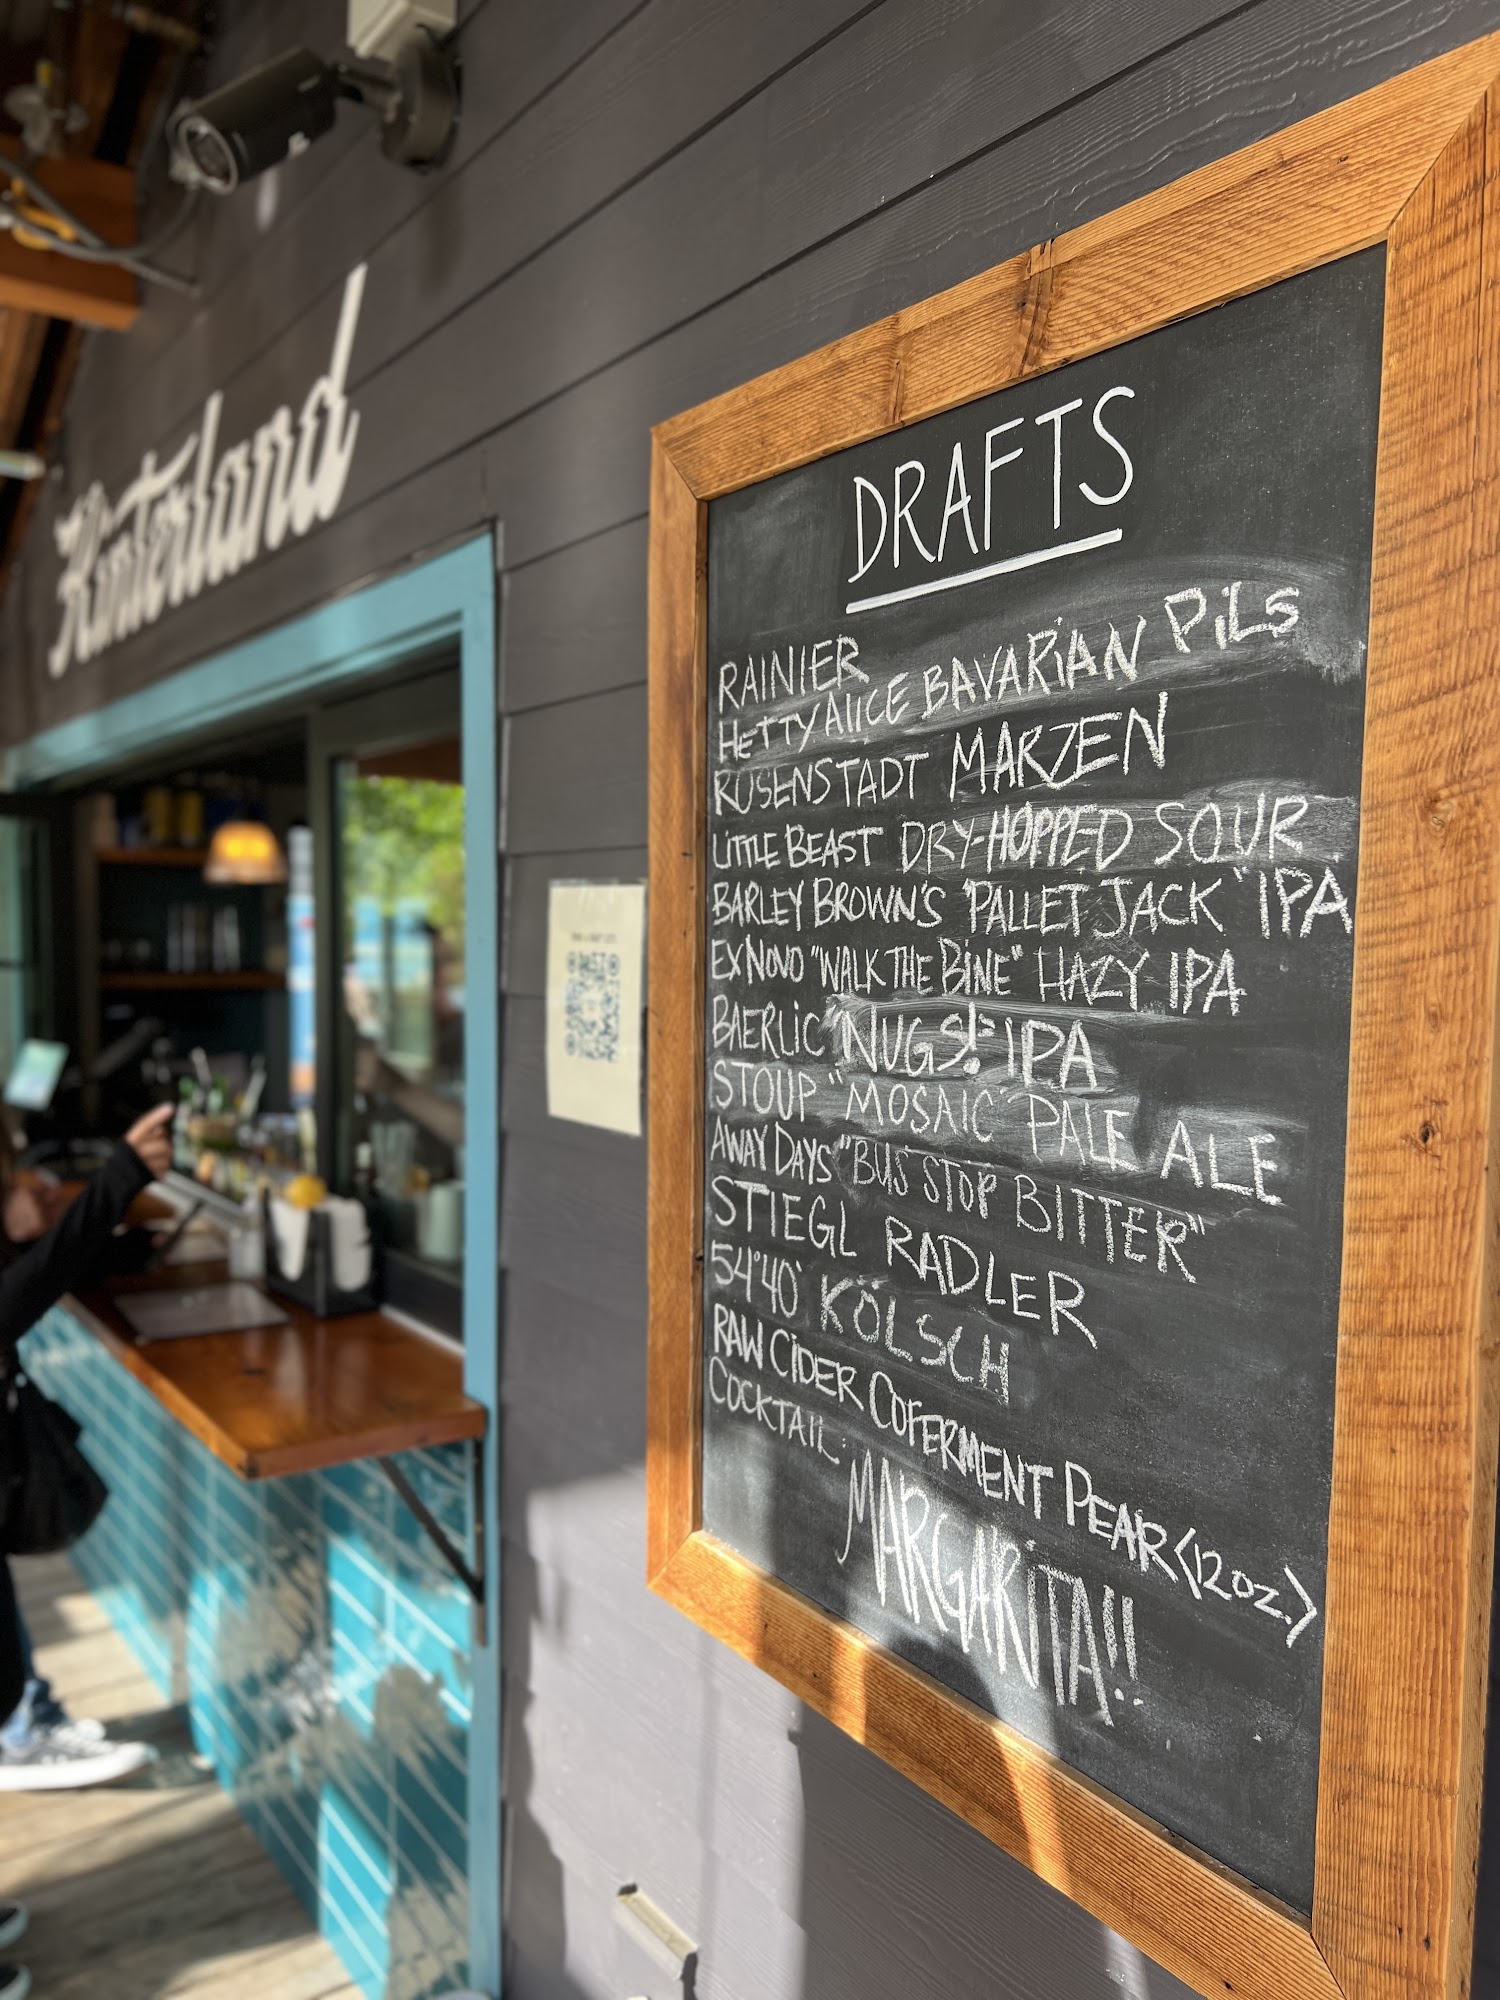 Hinterland
DRAFTS
RAINIER
HETTY ALICE BAVARIAN PILS
ROSENSTADT MARZEN
LITTLE BEAST DRY-HOPPED SOUR
BARLEY BROWN'S "PALLET JACK" IPA
EX NOVO "WALK THE BINE" HAZY IPA
BAERLIC "NUGS!" IPA
STOUP "MOSAIC" PALE ALE
AWAY DAYS "BUS STOP BITTER"
STIEGL RADLER
54°40' KÖLSCH
RAW CIDER COFERMENT PEAR (12OZ.)
COCKTAIL:
MARGARITA!!